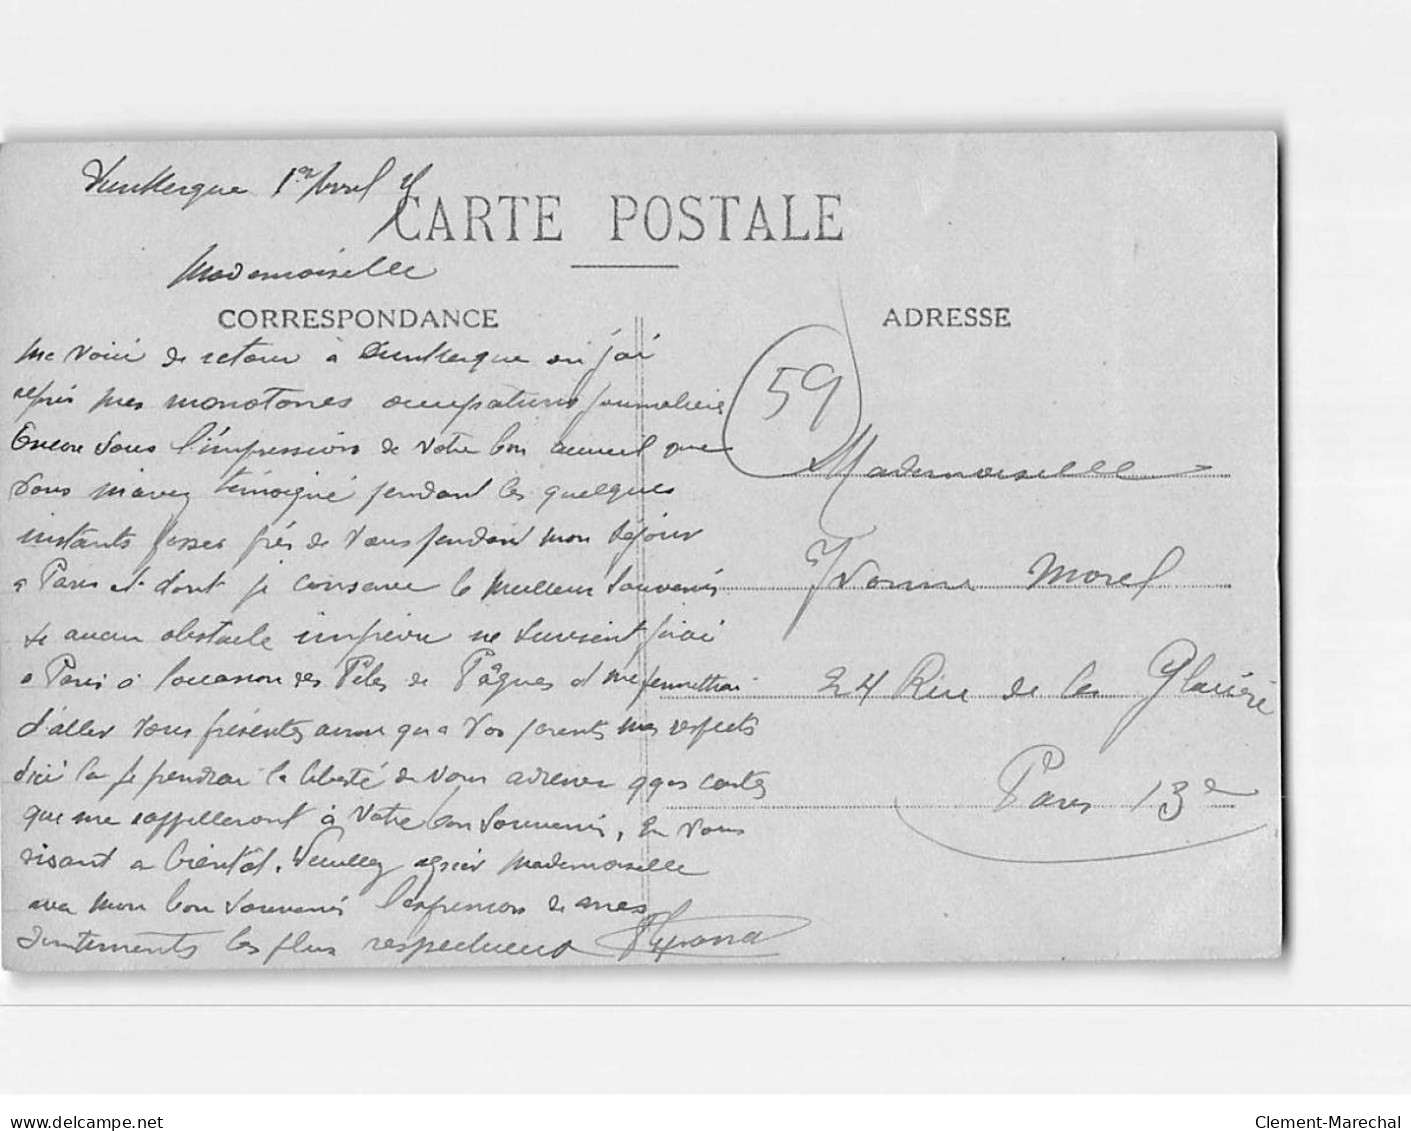 Dunkerque 1er Avril
CARTE POSTALE
Mademoiselle
CORRESPONDANCE
me voici de retour à Dunkerque où j'ai
repris mes monotones occupations journalières
Encore sous l'impression de votre bon accueil que
vous m'avez témoigné pendant les quelques
instants passés près de vous pendant mon séjour
a Paris et dont je conserve le meilleur souvenir
Si aucun obstacle imprévu ne survient j'irai
a Paris à l'occasion des Fêtes de Pâques et me permettrai
d'aller vous présenter ainsi qu'a vos parents mes respects
d'ici la je prendrai la liberté de vous adresser qques cartes
que me rappelleront à votre bon souvenir, En vous
disant a bientôt. Veuillez agréer Mademoiselle
avec mon bon souvenir l'expression de mes
sentiments les plus respectueux
ADRESSE
59
Mademoiselle
Yvonne Morel
24 Rue de la Glacière
Paris 13e
www.delcampe.net
Clement-Marechal